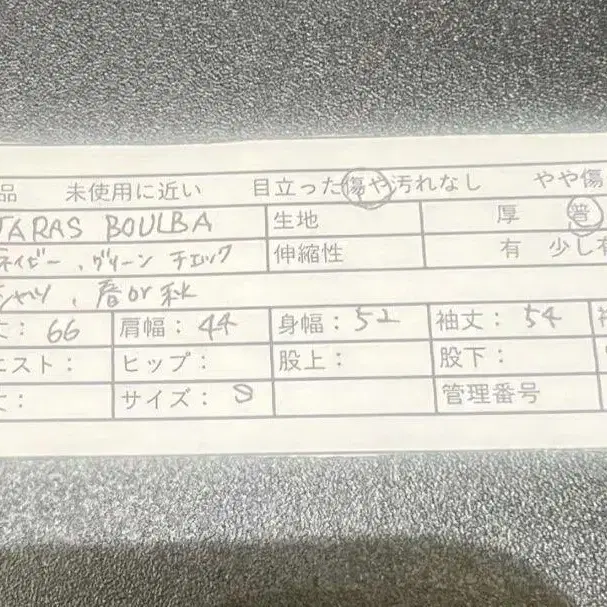 品 未使用に近い 目立った傷や汚れなし やや傷
TARAS BOULBA 生地 厚 普
ネイビー、グリーン チェック 伸縮性 有 少し有
シャツ、春or秋
丈: 66 肩幅: 44 身幅: 52 袖丈: 54
エスト: ヒップ: 股上: 股下:
丈: サイズ: S 管理番号